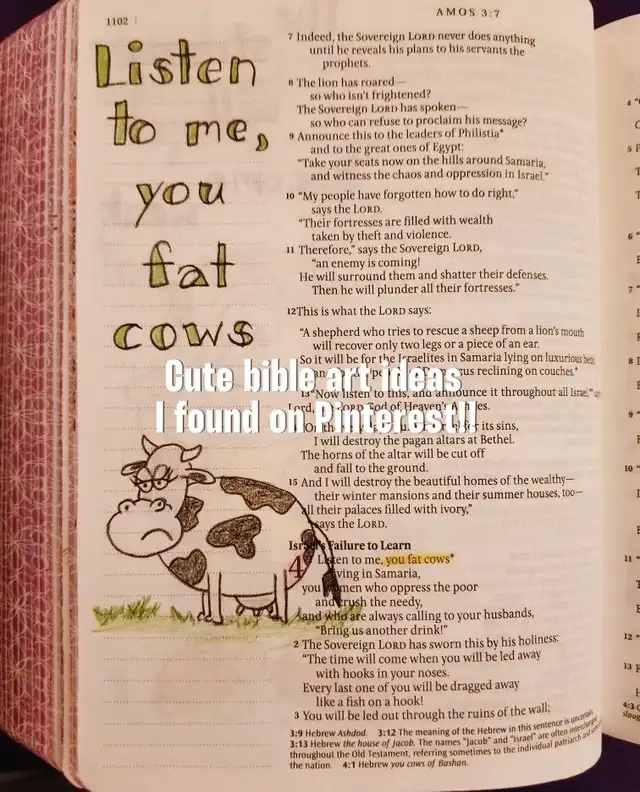 1102
AMOS 3:7
Listen
to me,
you
fat
cows
7 Indeed, the Sovereign LORD never does anything
until he reveals his plans to his servants the
prophets.
8 The lion has roared—
so who isn't frightened?
The Sovereign LORD has spoken—
so who can refuse to proclaim his message?
9 Announce this to the leaders of Philistia*
and to the great ones of Egypt:
"Take your seats now on the hills around Samaria,
and witness the chaos and oppression in Israel."
10 "My people have forgotten how to do right,"
says the LORD.
"Their fortresses are filled with wealth
taken by theft and violence.
11 Therefore," says the Sovereign LORD,
"an enemy is coming!
He will surround them and shatter their defenses.
Then he will plunder all their fortresses."
12 This is what the LORD says:
"A shepherd who tries to rescue a sheep from a lion's mouth
will recover only two legs or a piece of an ear.
So it will be for the Israelites in Samaria lying on luxurious beds,
reclining on couches."
Cute bible art ideas
I found on Pinterest!!
13 "Now listen to this, and announce it throughout all Israel,"
Lord, God of Heaven's
its sins,
I will destroy the pagan altars at Bethel.
The horns of the altar will be cut off
and fall to the ground.
15 And I will destroy the beautiful homes of the wealthy—
their winter mansions and their summer houses, too—
all their palaces filled with ivory,"
says the LORD.
Israel's Failure to Learn
4 Listen to me, you fat cows*
living in Samaria,
you women who oppress the poor
and crush the needy,
and who are always calling to your husbands,
"Bring us another drink!"
2 The Sovereign LORD has sworn this by his holiness:
"The time will come when you will be led away
with hooks in your noses.
Every last one of you will be dragged away
like a fish on a hook!
3 You will be led out through the ruins of the wall;
3:9 Hebrew Ashdod. 3:12 The meaning of the Hebrew in this sentence is uncertain.
3:13 Hebrew the house of Jacob. The names "Jacob" and "Israel" are often interchanged
throughout the Old Testament, referring sometimes to the individual patriarch and
the nation. 4:1 Hebrew you cows of Bashan.